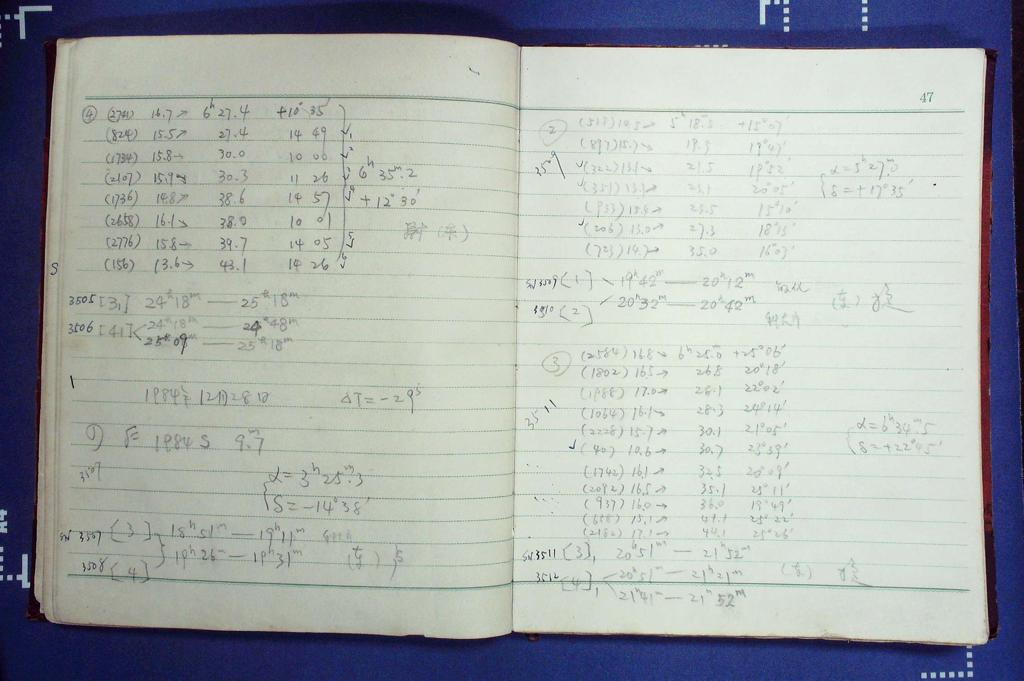 ④ (2741) 16.7→ 6ʰ 27.4 +10° 35′
(824) 15.5→ 27.4 14 49
(1734) 15.8→ 30.0 10 00
(2107) 15.9→ 30.3 11 26 6ʰ 35ᵐ.2
(1736) 14.8→ 38.6 14 57 +12°30′
(2658) 16.1→ 38.0 10 01
(2776) 15.8→ 39.7 14 05
(156) 13.6→ 43.1 14 26
S
3505 [3₁] 24ʰ18ᵐ — 25ʰ18ᵐ
3506 [4₁] 24ʰ18ᵐ — 24ʰ48ᵐ
25ʰ09ᵐ — 25ʰ18ᵐ
1984年12月28日 ΔT=-29ˢ
1984 S 9ᵐ.7
3507 α=3ʰ25ᵐ.3
δ=-14°38′
3507 [3] 18ʰ51ᵐ — 19ʰ11ᵐ
3508 [4] 19ʰ26ᵐ — 19ʰ31ᵐ
47
② (518) 10.5→ 5ʰ 18.5 +15°07′
(897) 15.7→ 19.3 19°47′
(322) 13.1→ 21.5 19°52′ α=5ʰ27ᵐ.0
(351) 13.1→ 25.1 20°05′ δ=+17°35′
(933) 15.8→ 25.5 15°10′
(206) 13.0→ 27.3 18°15′
(723) 14.7→ 35.0 16°03′
3509 [1] 19ʰ42ᵐ — 20ʰ12ᵐ
3510 [2] 20ʰ32ᵐ — 20ʰ42ᵐ
③ (2584) 16.8→ 6ʰ 25.0 +25°06′
(1802) 16.5→ 26.8 20°18′
(1988) 17.0→ 28.1 22°02′
(1064) 16.1→ 28.3 24°14′
3511 (2228) 15.7→ 30.1 21°05′ α=6ʰ34ᵐ.5
(40) 10.6→ 30.7 23°59′ δ=+22°45′
(1742) 16.1→ 32.5 20°09′
(2092) 16.5→ 35.1 25°11′
(937) 16.0→ 36.0 19°49′
(688) 15.1→ 41.1 25°22′
(2182) 17.1→ 44.1 25°26′
3511 [3] 20ʰ51ᵐ — 21ʰ52ᵐ
3512 [4] 20ʰ51ᵐ — 21ʰ21ᵐ
21ʰ41ᵐ — 21ʰ52ᵐ